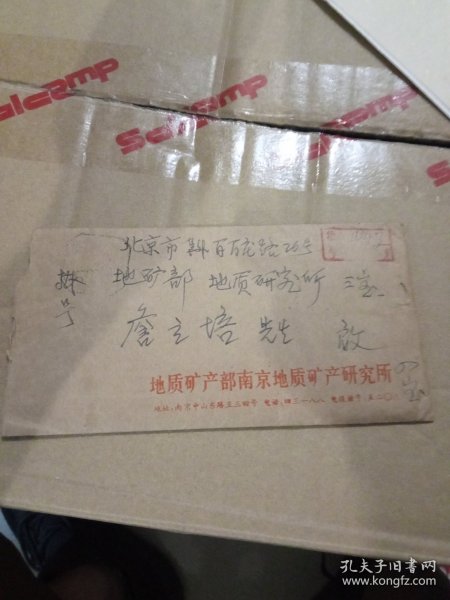 Scalcamp
Scalcamp
北京市阜外百万庄路26号
地矿部 地质研究所
詹立培 先生 启
挂号
地质矿产部南京地质矿产研究所
地址:南京中山东路五三四号 电话:四三一八八
孔夫子旧书网
www.kongfz.com